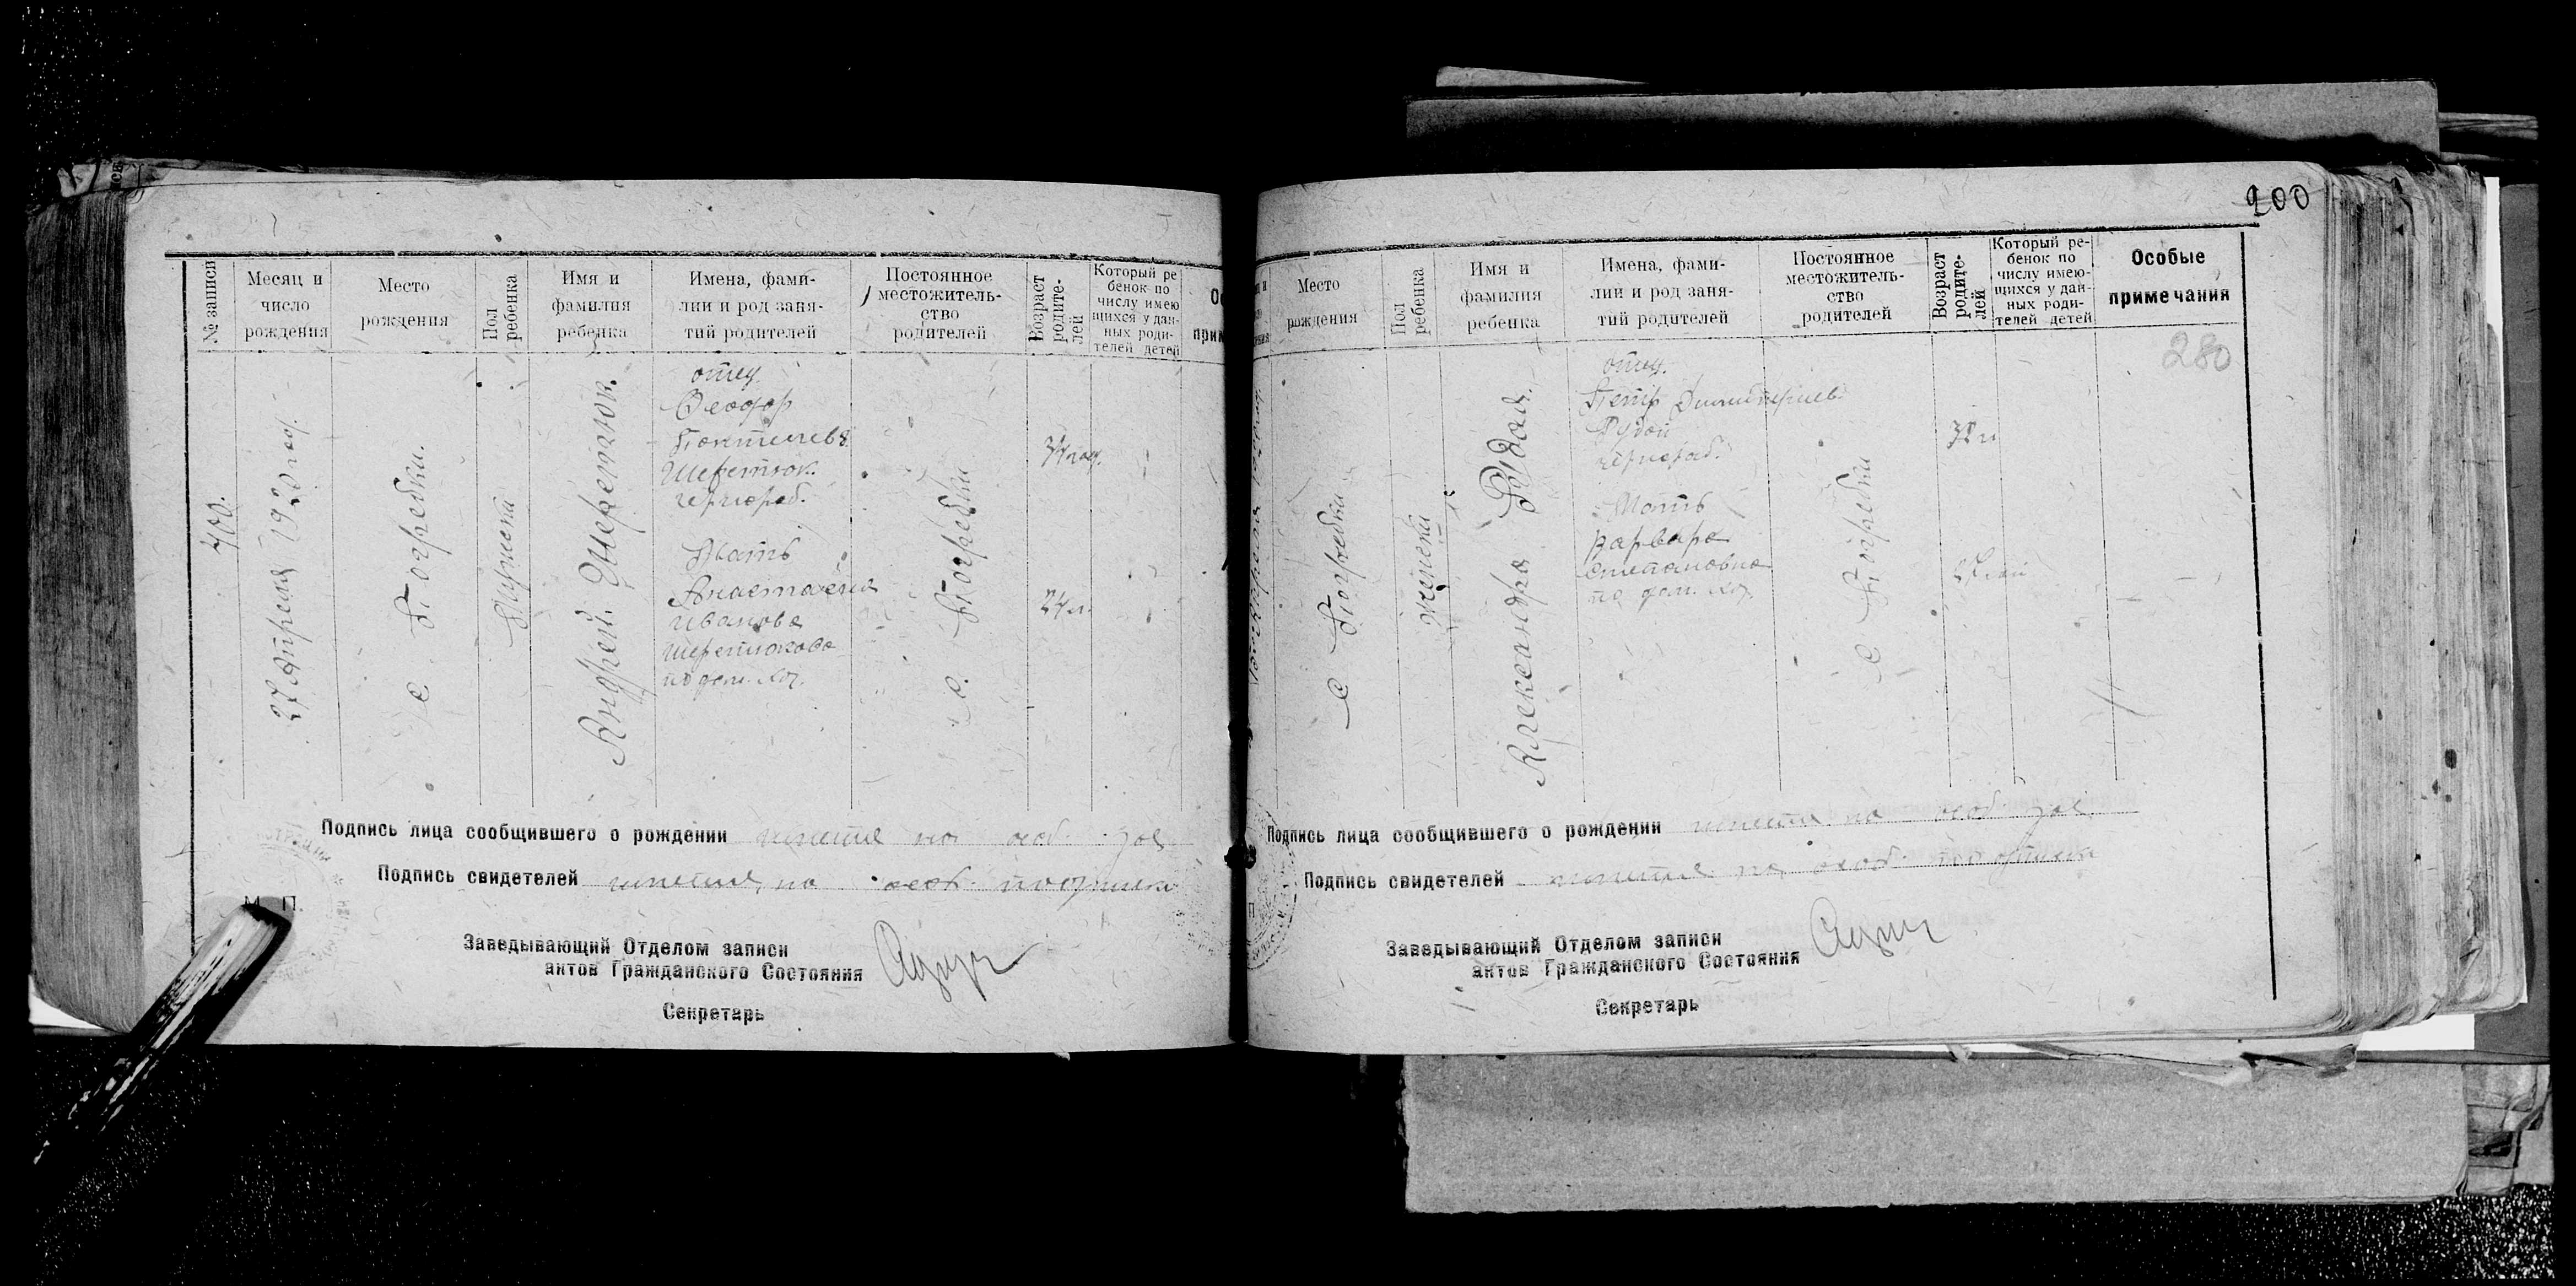 № записи
Месяц и
число
рождения
Место
рождения
Пол
ребенка
Имя и
фамилия
ребенка
Имена, фами-
лии и род заня-
тий родителей
Постоянное
местожитель-
ство
родителей
Возраст
родите-
лей
Который ре
бенок по
числу имею
щихся у дан-
ных роди-
телей детей
700.
27 Апреля 1920 год.
с. Погребки.
Мужески
Андрей
отец
Феодор
Шеремток.
чернораб.
Мать
Анастасия
Иванова
по дом. хоз.
с. Погребки
34 год.
24 л.
Подпись лица сообщившего о рождении имется на особ. зая
Подпись свидетелей имется на особ. подписки
М. П.
Заведывающий Отделом записи
актов Гражданского Состояния
Секретарь
200
Место
рождения
Пол
ребенка
Имя и
фамилия
ребенка
Имена, фами-
лии и род заня-
тий родителей
Постоянное
местожитель-
ство
родителей
Возраст
родите-
лей
Который ре-
бенок по
числу имею-
щихся у дан-
ных роди-
телей детей
Особые
примечания
280
с Погребки
женски
Александра Рудая.
отец.
Петр Димитриев
Рудой
чернораб.
Мать
Варвара
Степановна
по дом. хоз.
с Погребки
Подпись лица сообщившего о рождении имется на особ. зая
Подпись свидетелей имется на особ. подписки
Заведывающий Отделом записи
актов Гражданского Состояния
Секретарь